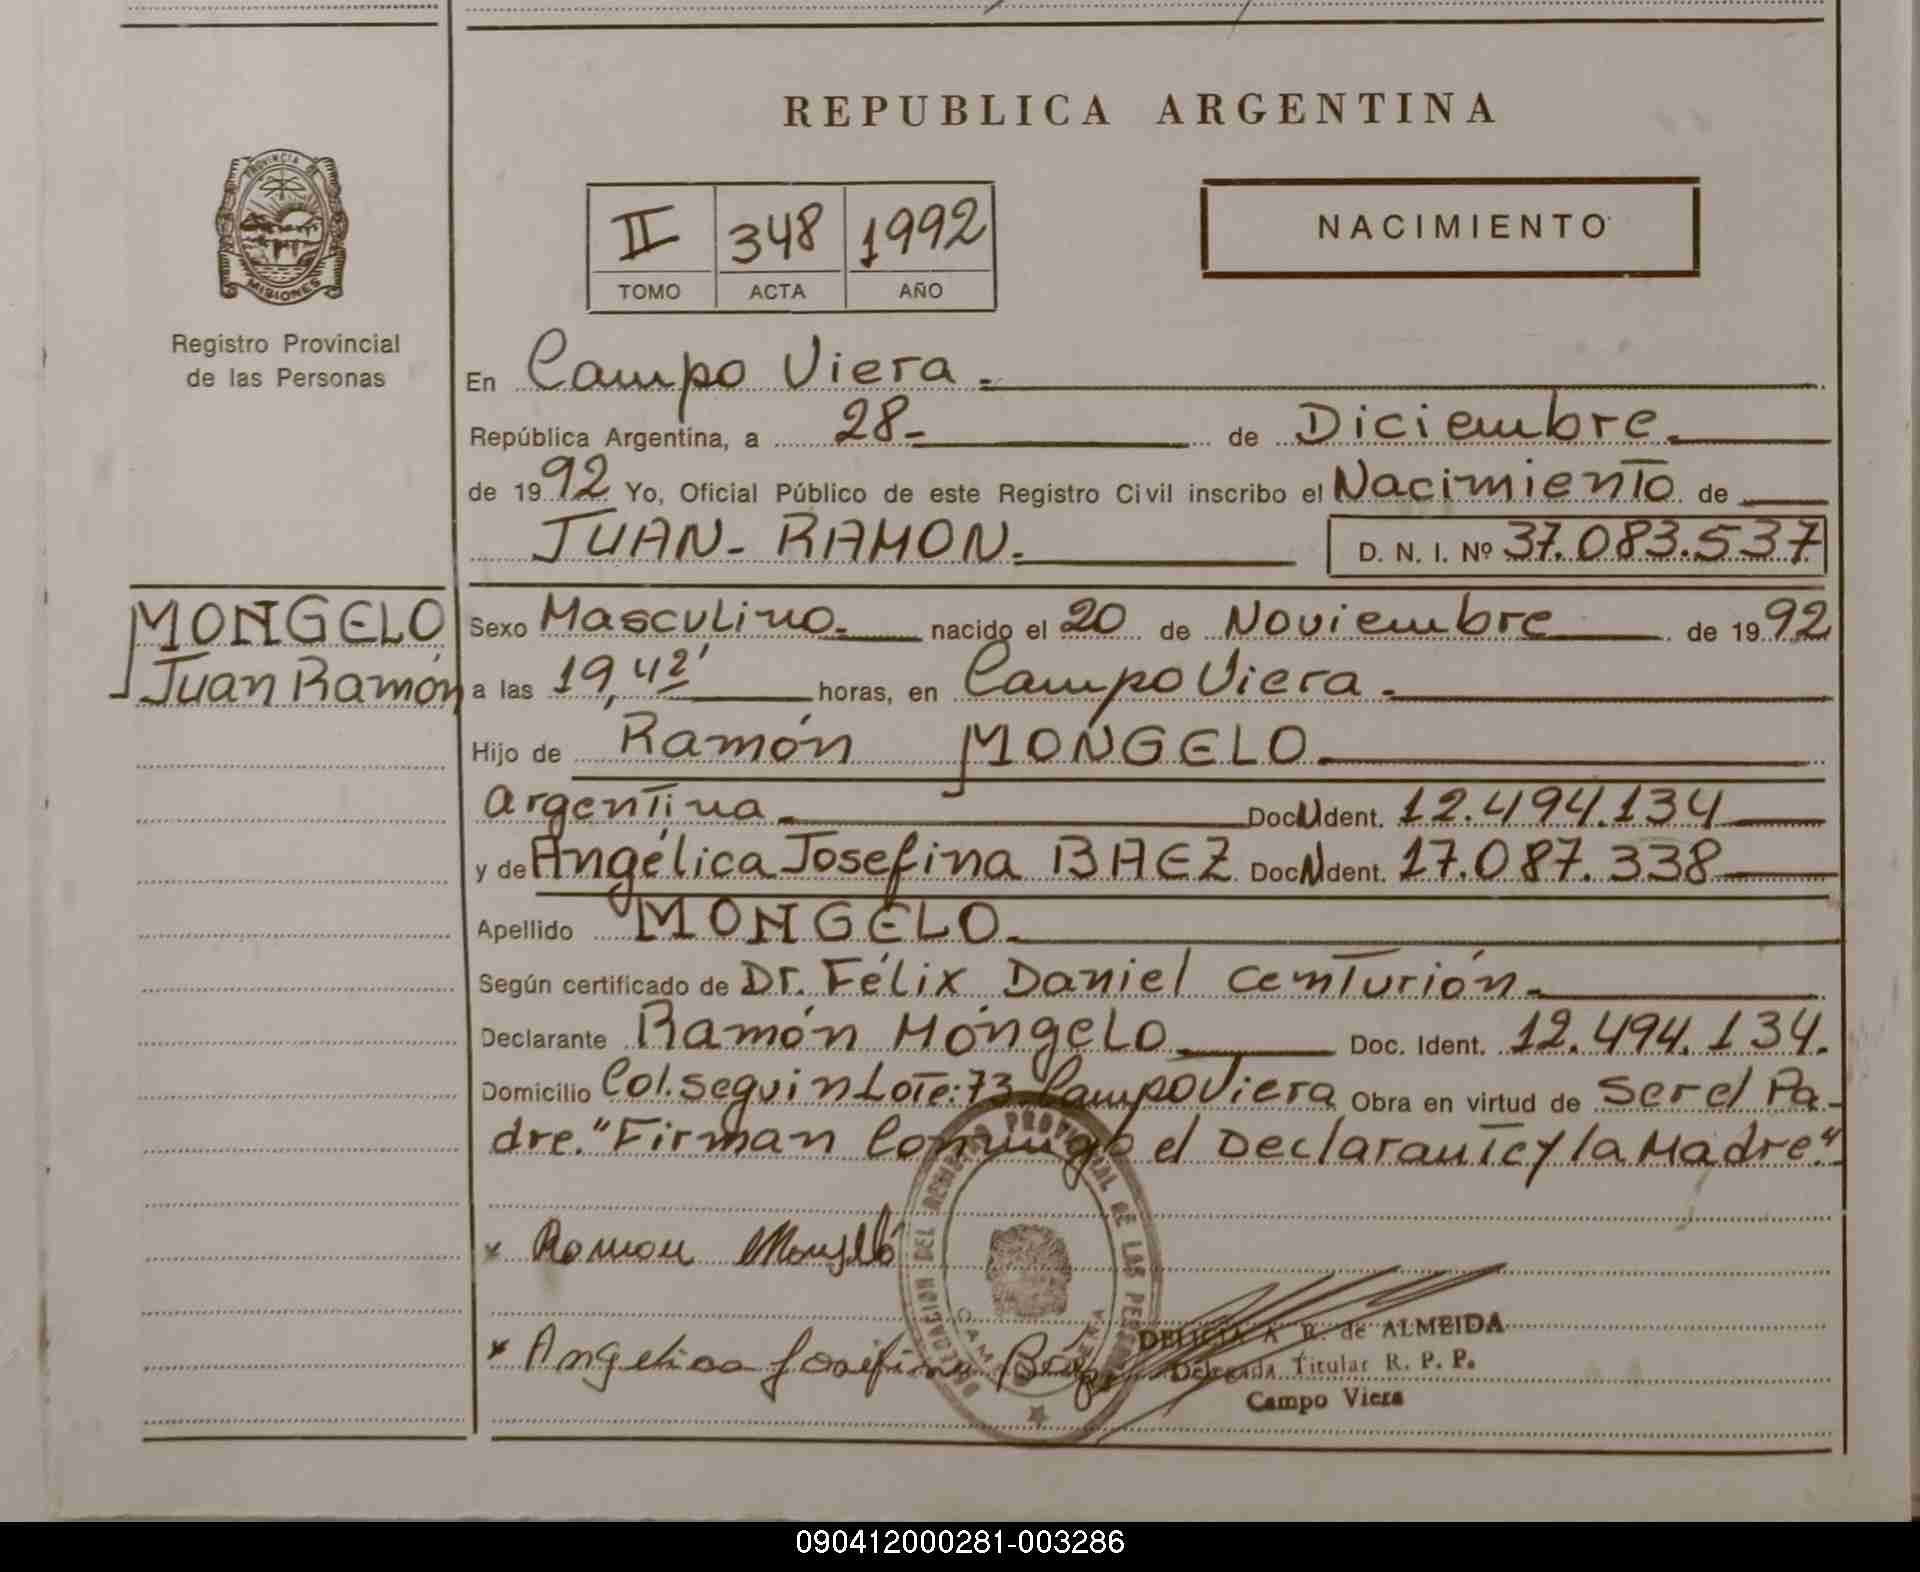 REPUBLICA ARGENTINA
PROVINCIA DE
MISIONES
Registro Provincial
de las Personas
II 348 1992
TOMO ACTA AÑO
NACIMIENTO
En Campo Viera
República Argentina, a 28 de Diciembre
de 1992 Yo, Oficial Público de este Registro Civil inscribo el Nacimiento de
JUAN - RAMON. D. N. I. Nº 37.083.537
MONGELO
Juan Ramón
Sexo Masculino nacido el 20 de Noviembre de 1992
a las 19,42' horas, en Campo Viera.
Hijo de Ramón MONGELO
Argentina Doc. Ident. 12.494.134
y de Angélica Josefina BAEZ Doc. Ident. 17.087.338
Apellido MONGELO
Según certificado de Dr. Félix Daniel Centurión
Declarante Ramón Móngelo Doc. Ident. 12.494.134.
Domicilio Col. Seguin Lote: 73. Campo Viera Obra en virtud de Ser el Pa-
dre. "Firman Conmigo el Declarante y la Madre".
x Ramon Mongelo
x Angelica Josefina Baez
DELEGACION DEL REGISTRO PROVINCIAL DE LAS PERSONAS
DELICIA A R de ALMEIDA
Delegada Titular R. P. P.
Campo Viera
090412000281-003286